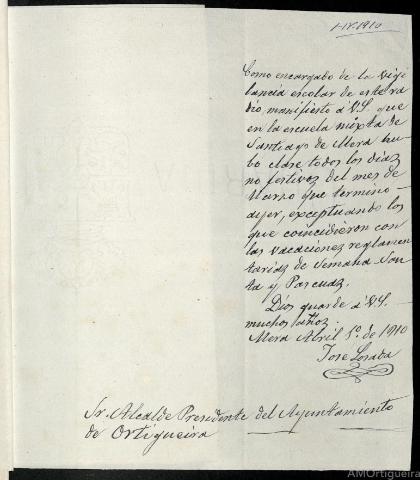 1-IV-1910
Como encargado de la vigi
lancia escolar de este ra
dio, manifiesto á V.S. que
en la escuela mixta de
Santiago de Mera hu-
bo clase todos los diaz
no festivoz del mes de
Marzo que terminó
ayer, exceptuando los
que coincidieron con
las vacacionez reglamen
tariaz de Semana San
ta y Pascuaz.
Dios guarde á V.S.
muchos añoz.
Mera Abril 1º. de 1910
Jose Losada
Sr. Alcalde Presidente del Ayuntamiento
de Ortigueira
AMOrtigueira